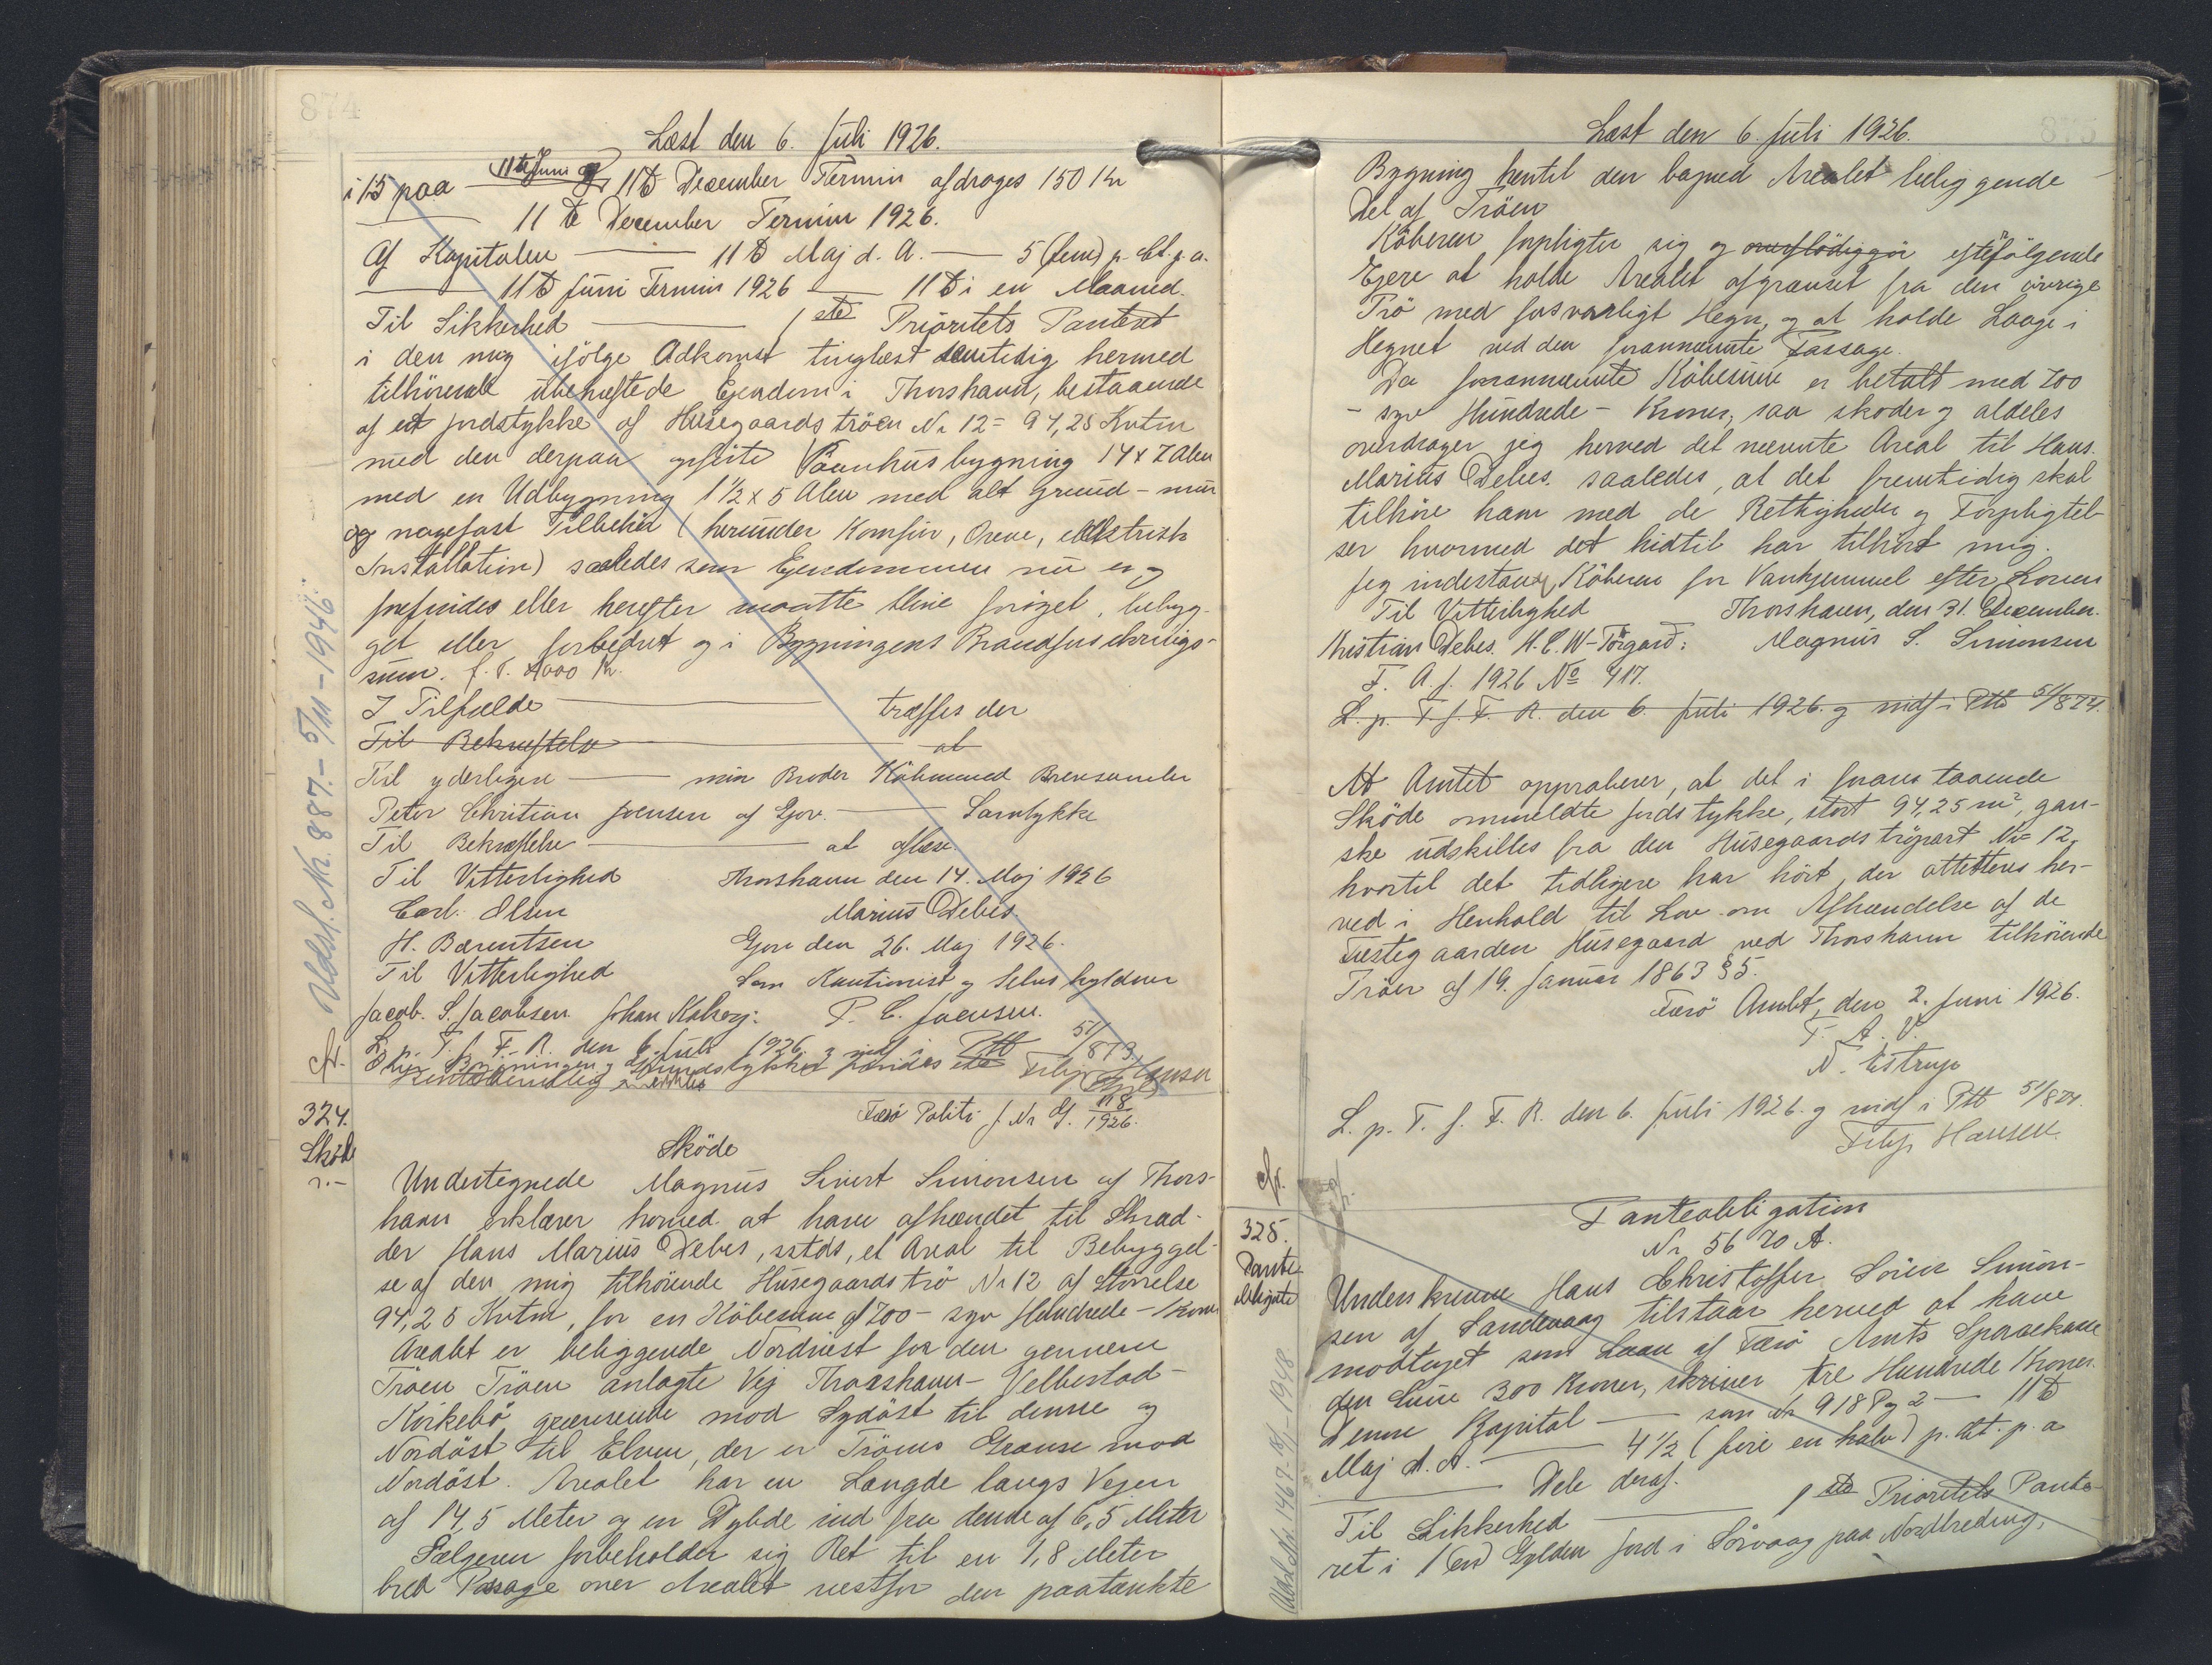 874
Læst den 6. Juli 1926.
i 15 paa 11te Juni og 11te December Termin afdrages 150 Kr
11te December Termin 1926.
Af Kapitalen 11te Maj d. A. 5 (fem) p. Ct. p. a.
11te Juni Termin 1926 11te i en Maaned.
Til Sikkerhed 1ste Prioritets Panteret
i den mig ifölge Adkomst tinglæst samtidig hermed
tilhörende übehæftede Ejendom i Thorshavn, bestaaende
af et Jordstykke af Húsegaardströen Nr 12 = 94,25 Kvtm
med den derpaa opförte Vaanhúsbygning 14 x 7 Alen
med en Udbygning 1½ x 5 Alen med alt grund - mur
og nagefast Tilbehör (herunder Komfür, Ovne, elektrisk
Installation) saaledes som Ejendommen nú er og
forefindes eller herefter maatte blive foröget, bebyg-
get eller forbedret og i Bygningens Brandforsikrings-
sum. f. T. 4000 Kr.
I Tilfælde træffes der
Til Bekræftelse at
Til yderligere min Broder Köbmand Brevsamler
Peter Christian Joensen af Gjov. Samtykke
Til Bekræftelse at aflæse.
Til Vitterlighed Thorshavn den 14. Maj 1926
Carl. Olsen Marius Debes.
H. Bærentsen Gjov den 26. Maj 1926.
Til Vitterlighed Som Kautionist og Selvskyldner
Jacob. S. Jacobsen Johan P. C. Joensen.
L. p. T. f. F. R. den 6. Juli 1926 og indf i Ptb 51/873.
Hansen
Udsl. Nr. 887. - 5/11 - 1946.
324.
Sköde
Færö Politi J. Nr G. 118/1926.
Sköde
Undertegnede Magnus Sivert Simonsen af Thors-
havn erklærer herved at have afhændet til Skræd-
der Hans Marius Debes, sstds, et Areal til Bebyggel-
se af den mig tilhörende Húsegaardströ Nr 12 af Störrelse
94,25 Kvtm, for en Köbesum af 700 - syv Hundrede - Kroner
Arealet er beliggende Nordvest for den gennem
Tröen Tröen anlagte Vej Thorshavn - Velbestad -
Kirkebö grænsende mod Sydöst til denne og
Nordöst til Elven, der er Tröens Grænse mod
Nordöst. Arealet har en Længde langs Vejen
af 14,5 Meter og en Dybde ind fra denne af 6,5 Meter
Sælgeren forbeholder sig Ret til en 1,8 Meter
bred Passage over Arealet vestfor den paatænkte
Læst den 6. Juli 1926.
Bygning hentil den bagved Arealet beliggende
Del af Tröen
Köberen forpligter sig og overflödiggör efterfölgende
Ejere at holde Arealet afgrænset fra den övrige
Trö med forsvarligt Hegn, og at holde Laage i
Hegnet ved den forannævnte Passage.
Da forannævnte Köbesum er betalt med 700
- syv Hundrede - Kroner, saa skøder og aldeles
overdrager jeg herved det nævnte Areal til Hans
Marius Debes. saaledes, at det fremtidig skal
tilhöre ham med de Rettigheder og Forpligtel-
ser hvormed det hidtil har tilhört mig.
Jeg indestaar Köberen for Vanhjemmel efter Loven
Til Vitterlighed Thorshavn, den 31. December.
Kristian Debes. H. C. W-Törgard: Magnus S. Simonsen
F. A. J. 1926 No 417.
L. p. T. f. F. R. den 6. Juli 1926. og indf i Ptb 51/874.
At Amtet approberer, at det i foranstaaende
Sköde ommeldte Jordstykke, stort 94,25 m², gan-
ske udskilles fra den Húsegaardströpart No 12,
hvortil det tidligere har hört, der attesteres her-
ved i Henhold til Lov om Afhændelse af de
Fæstegaarden Húsegaard ved Thorshavn tilhörende
Tröer af 19. Januar 1863 § 5.
Færö Amt, den 2. Juni 1926.
F. A. V.
N. Estrup
L. p. T. f. F. R. den 6. Juli 1926. og indf i Ptb 51/874.
Hansen.
325.
Pante
obligation
Panteobligation
Nr 5670 A.
Underskrevne Hans Christoffer Sören Simon-
sen af Sandevaag tilstaar herved at have
modtaget som Laan af Færö Amts Sparekasse
den Sum 300 Kroner, skriver tre Hundrede Kroner.
Denne Kapital som Nr 918 P g 2 11te
Maj d. A. 4½ (fire en halv) p. Ct. p. a
Dele deraf.
Til Sikkerhed 1ste Prioritets Pante-
ret i 1 (en) Gylden Jord i Sörvaag paa Nordbreding,
Udsl. Nr 1467. - 1948